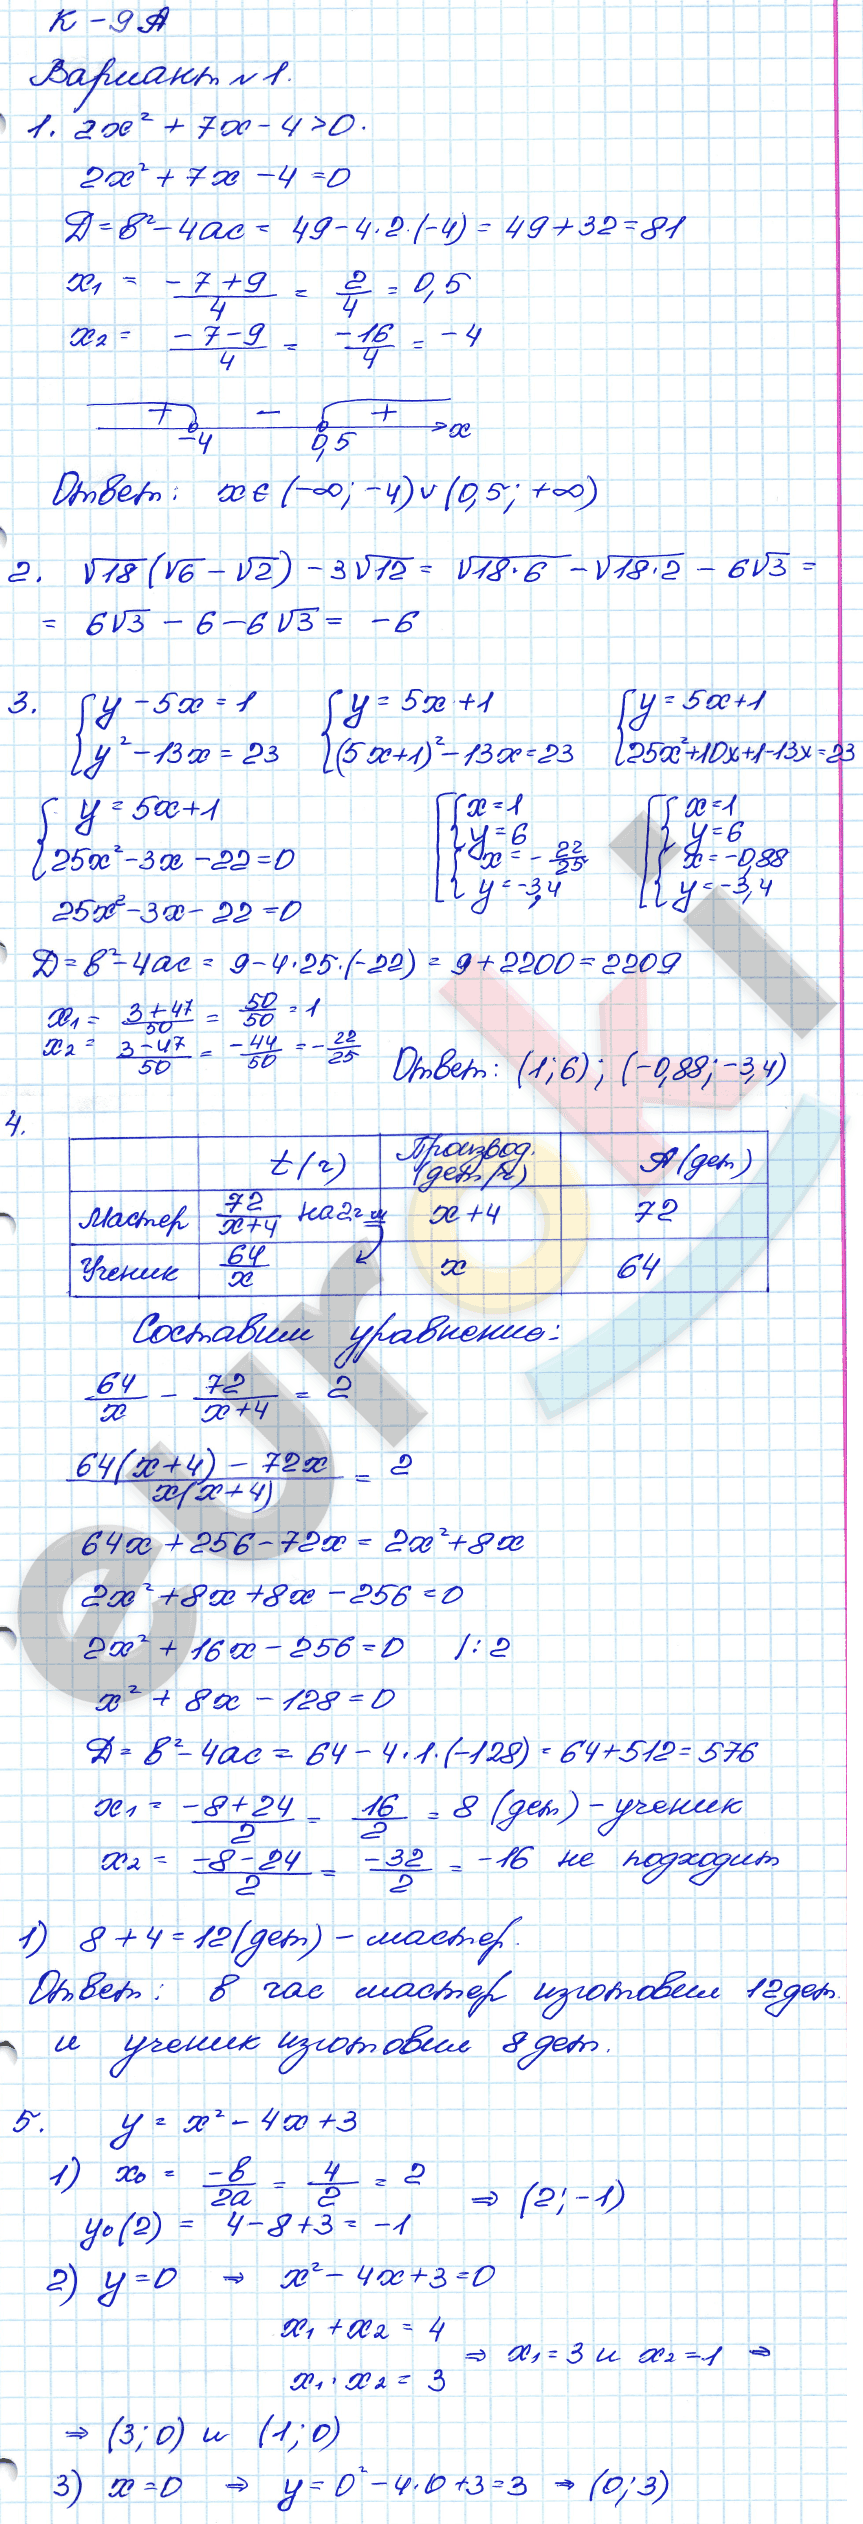 К-9А
Вариант №1.
1. 2x² + 7x - 4 > 0.
2x² + 7x - 4 = 0
Д = b² - 4ac = 49 - 4·2·(-4) = 49 + 32 = 81
x₁ = (-7+9)/4 = 2/4 = 0,5
x₂ = (-7-9)/4 = -16/4 = -4
+ - +
-4 0,5 x
Ответ: x ∈ (-∞; -4) ∪ (0,5; +∞)
2. √18(√6 - √2) - 3√12 = √18·6 - √18·2 - 6√3 =
= 6√3 - 6 - 6√3 = -6
3. {y - 5x = 1 {y = 5x + 1 {y = 5x + 1
{y² - 13x = 23 {(5x+1)² - 13x = 23 {25x² + 10x + 1 - 13x = 23
{y = 5x + 1 [{x = 1 [{x = 1
{25x² - 3x - 22 = 0 {y = 6 {y = 6
{x = -22/25 {x = -0,88
25x² - 3x - 22 = 0 {y = -3,4 {y = -3,4
Д = b² - 4ac = 9 - 4·25·(-22) = 9 + 2200 = 2209
x₁ = (3+47)/50 = 50/50 = 1
x₂ = (3-47)/50 = -44/50 = -22/25
Ответ: (1; 6); (-0,88; -3,4)
4.
t(ч) Производ. (дет/ч) А(дет)
Мастер 72/(x+4) на 2ч м x+4 72
Ученик 64/x x 64
Составим уравнение:
64/x - 72/(x+4) = 2
(64(x+4) - 72x)/(x(x+4)) = 2
64x + 256 - 72x = 2x² + 8x
2x² + 8x + 8x - 256 = 0
2x² + 16x - 256 = 0 /: 2
x² + 8x - 128 = 0
Д = b² - 4ac = 64 - 4·1·(-128) = 64 + 512 = 576
x₁ = (-8+24)/2 = 16/2 = 8 (дет) - ученик
x₂ = (-8-24)/2 = -32/2 = -16 не подходит
1) 8 + 4 = 12 (дет) - мастер.
Ответ: в час мастер изготовил 12 дет.
и ученик изготовил 8 дет.
5. y = x² - 4x + 3
1) x₀ = -b/2a = 4/2 = 2
⇒ (2; -1)
y₀(2) = 4 - 8 + 3 = -1
2) y = 0 ⇒ x² - 4x + 3 = 0
x₁ + x₂ = 4
⇒ x₁ = 3 и x₂ = 1 ⇒
x₁ · x₂ = 3
⇒ (3; 0) и (1; 0)
3) x = 0 ⇒ y = 0² - 4·0 + 3 = 3 ⇒ (0; 3)
euroki